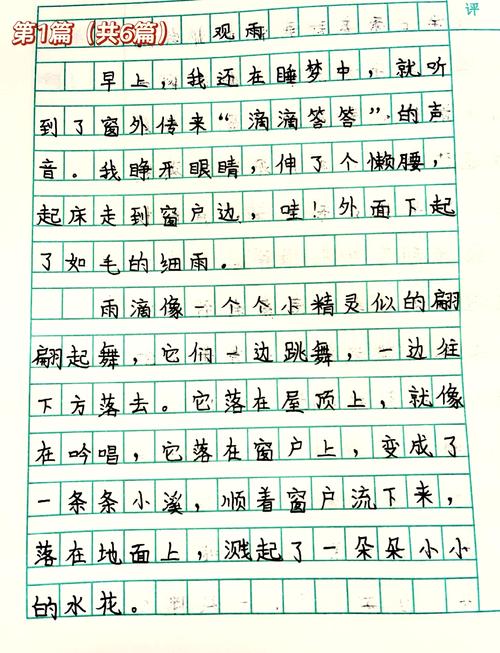 第1篇（共6篇）
评
观雨
早上，我还在睡梦中，就听
到了窗外传来“滴滴答答”的声
音。我睁开眼睛，伸了个懒腰，
起床走到窗户边，哇！外面下起
了如毛的细雨。
雨滴像一个个小精灵似的翩
翩起舞，它们一边跳舞，一边往
下方落去。它落在屋顶上，就像
在吟唱，它落在窗户上，变成了
一条条小溪，顺着窗户流下来，
落在地面上，溅起了一朵朵小小
的水花。